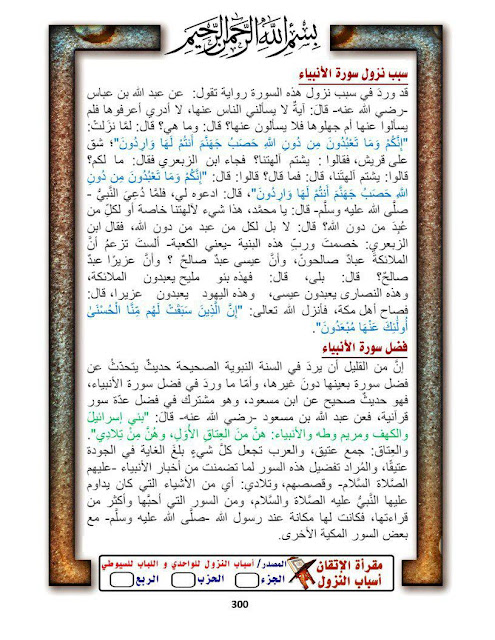 بسم الله الرحمن الرحيم
سبب نزول سورة الأنبياء
قد ورد في سبب نزول هذه السورة رواية تقول: عن عبد الله بن عباس
-رضي الله عنه- قال: آيةٌ لا يسألني الناس عنها، لا أدري أعرفوها فلم
يسألوا عنها أم جهلوها فلا يسألون عنها؟ قال: وما هي؟ قال: لمّا نزلَتْ:
"إِنَّكُمْ وَمَا تَعْبُدُونَ مِن دُونِ اللَّهِ حَصَبُ جَهَنَّمَ أَنتُمْ لَهَا وَارِدُونَ"؛ شق
على قريش، فقالوا : يشتم آلهتنا؟ فجاء ابن الزبعري فقال: ما لكم؟
قالوا: يشتم آلهتنا، قال: فما قال؟ قالوا: قال: "إِنَّكُمْ وَمَا تَعْبُدُونَ مِن دُونِ
اللَّهِ حَصَبُ جَهَنَّمَ أَنتُمْ لَهَا وَارِدُونَ"، قال: ادعوه لي، فلمَّا دُعِيَ النَّبيُّ -
صلَّى الله عليه وسلَّم- قال: يا محمَّد، هذا شيء لآلهتنا خاصة أو لكلِّ من
عُبِدَ من دون الله؟ قال: لا بل لكل من عبد من دون الله، فقال ابن
الزبعري: خصمتَ وربِّ هذه البنية -يعني الكعبة- ألستَ تزعمُ أنَّ
الملائكة عبادٌ صالحونَ، وأنَّ عيسى عبدٌ صالحٌ ؟ وأنَّ عزيرًا عبدٌ
صالحٌ؟ قال: بلى، قال: فهذه بنو مليح يعبدون الملائكة،
وهذه النصارى يعبدون عيسى، وهذه اليهود يعبدون عزيرا، قال:
فصاح أهل مكة، فأنزل الله تعالى: "إِنَّ الَّذِينَ سَبَقَتْ لَهُم مِّنَّا الْحُسْنَىٰ
أُولَٰئِكَ عَنْهَا مُبْعَدُونَ".
فضل سورة الأنبياء
إنَّ من القليل أن يردَ في السنة النبوية الصحيحة حديثٌ يتحدّثُ عن
فضل سورة بعينها دونَ غيرها، وأمّا ما وردَ في فضل سورة الأنبياء،
فهو حديثٌ صحيح عن ابن مسعود، وهو مشترك في فضل عدّة سور
قرآنية، فعن عبد الله بن مسعود -رضي الله عنه- قالَ: "بَني إسرائيلَ
والكهف ومريم وطه والأنبياء: هنَّ منَ العِتاقِ الأُوَلِ، وهُنّ مِنْ تِلادِي".
والعِتاق: جمع عتيق، والعرب تجعل كلَّ شيءٍ بلغَ الغاية في الجودة
عتيقًا، والمُراد تفضيل هذه السور لما تضمنت من أخبار الأنبياء -عليهم
الصلاة السَّلام- وقصصهم، وتلادي: أي من الأشياء التي كان يداوم
عليها النَّبيُّ عليه الصَّلاة والسَّلام، ومن السور التي أحبَّها وأكثر من
قراءتها، فكانت لها مكانة عند رسول الله -صلَّى الله عليه وسلَّم- مع
بعض السور المكية الأخرى.
مقرأة الإتقان
أسباب النزول
المصدر/ أسباب النزول للواحدي و اللباب للسيوطي
الجزء الحزب الربع
300